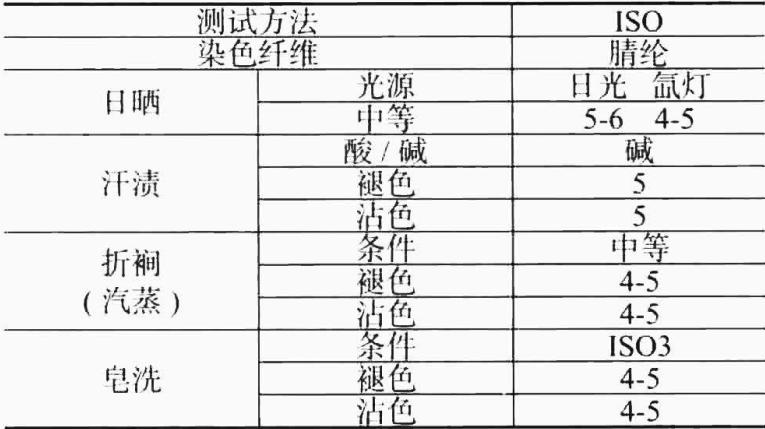 测试方法 ISO
染色纤维 腈纶
日晒 光源 日光 氙灯
中等 5-6 4-5
汗渍 酸/碱 碱
褪色 5
沾色 5
折裥 (汽蒸) 条件 中等
褪色 4-5
沾色 4-5
皂洗 条件 ISO3
褪色 4-5
沾色 4-5